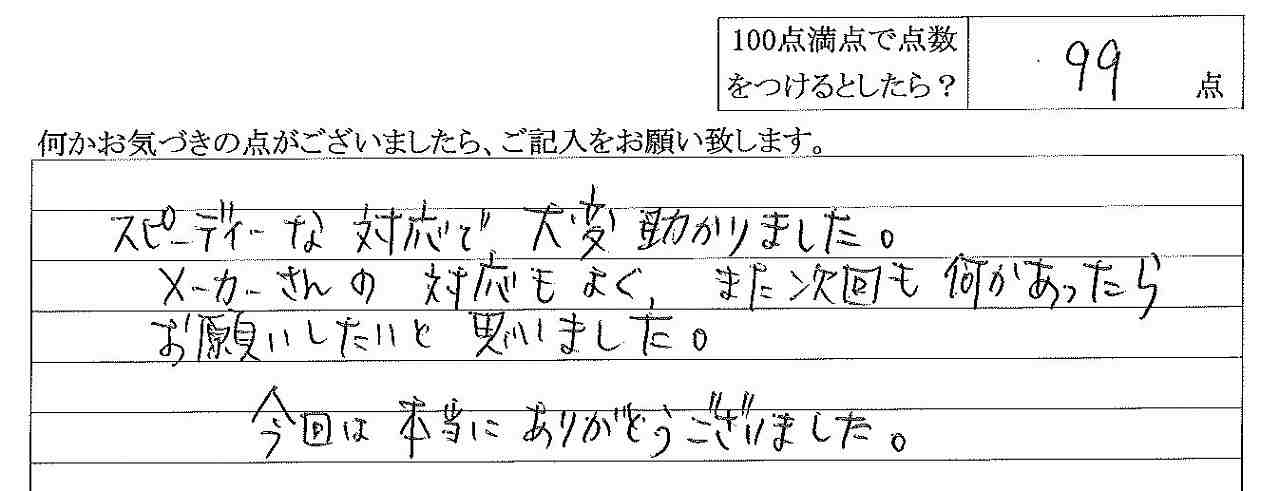 100点満点で点数
をつけるとしたら？
99
点
何かお気づきの点がございましたら、ご記入をお願い致します。
スピーディーな対応で大変助かりました。
メーカーさんの対応もよく、また次回も何かあったら
お願いしたいと思いました。
今回は本当にありがとうございました。